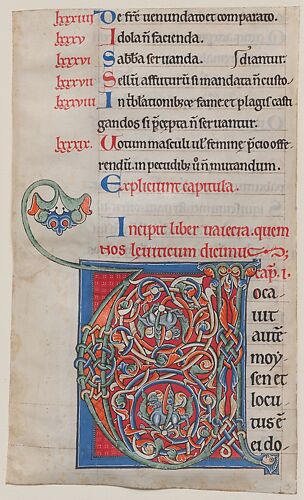 lxxxiiii De fr̄e venundato et comparato.
lxxxv Idola n̄ facienda.
lxxxvi Sabba servanda. diantur.
lxxxvii Sellīi affuturū si mandata n̄ custo
lxxxviii In tribłationibȝ fame et plagis casti
gandos si p̄cepta n̄ servantur.
lxxxix. Votum masculi uł femine p̄cio offe
rendū in pecudibȝ ū n̄ mutandum.
Expliciunt capitula.
Incipit liber vaiecra. quem
nos leviticum dicimus
cap̄. i.
V
oca
uit
autē
moy
sen et
locu
tus ē
ei do